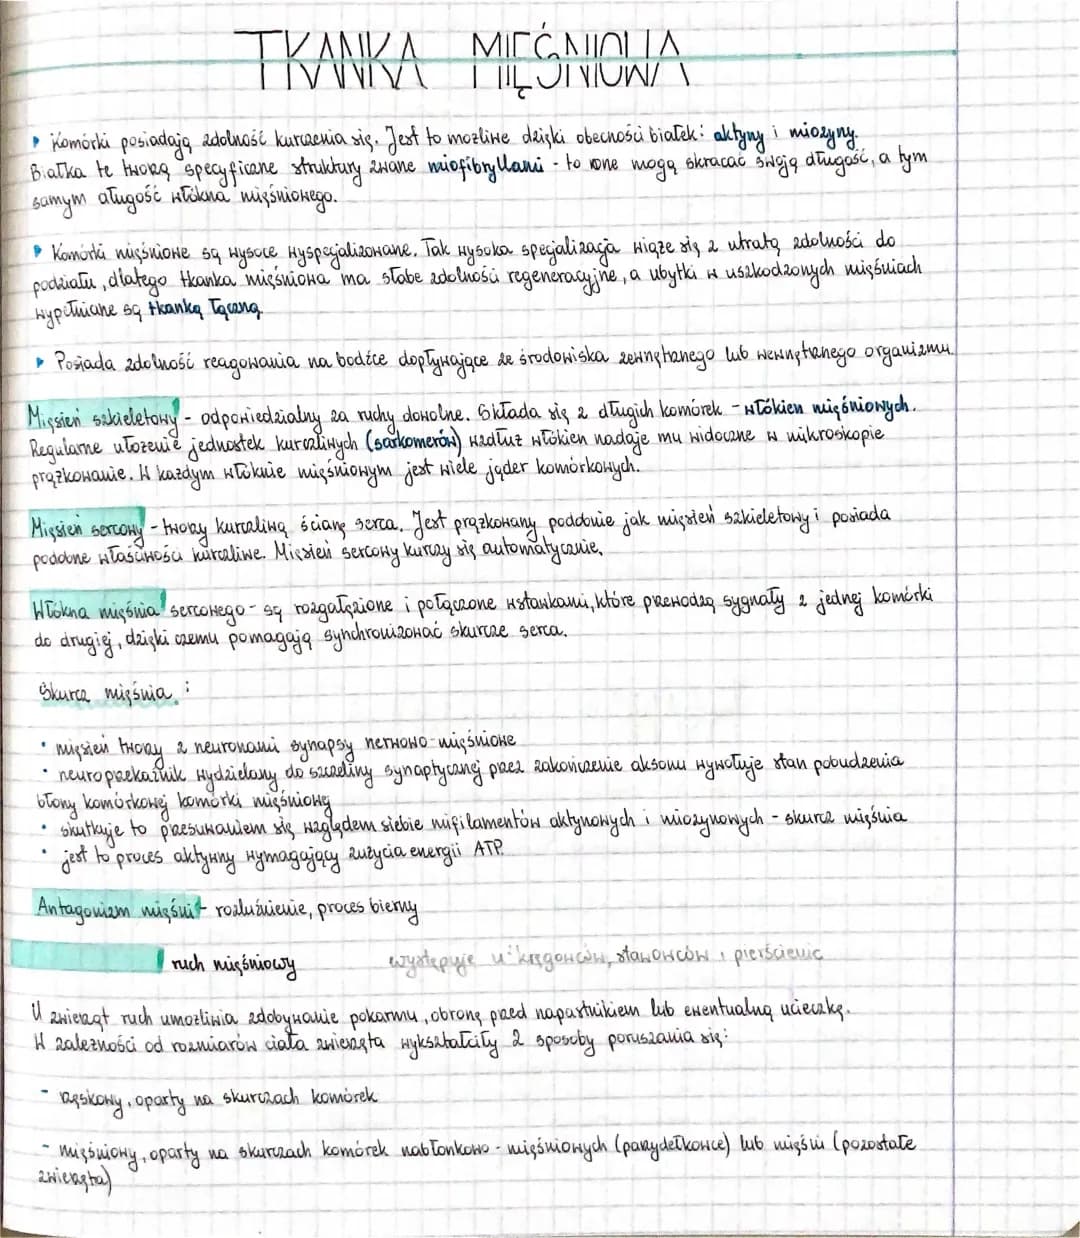 TKANKA MIĘŚNIOWA
▸ Komórki posiadają zdolność kurczenia się. Jest to możliwe dzięki obecności białek: aktyny i miozyny.
Białka te tworzą specyficzne struktury zwane miofibryllami - to one mogą skracać swoją długość, a tym
samym długość włókna mięśniowego.
▸ Komórki mięśniowe są wysoce wyspecjalizowane. Tak wysoka specjalizacja wiąże się z utratą zdolności do
podziału, dlatego tkanka mięśniowa ma słabe zdolności regeneracyjne, a ubytki w uszkodzonych mięśniach
wypełniane są tkanką łączną.
▸ Posiada zdolność reagowania na bodźce dopływające ze środowiska zewnętrznego lub wewnętrznego organizmu.
Mięsień szkieletowy - odpowiedzialny za ruchy dowolne. Składa się z długich komórek - włókien mięśniowych.
Regularne ułożenie jednostek kurczliwych (sarkomerów) wzdłuż włókien nadaje mu widoczne w mikroskopie
prążkowanie. W każdym włóknie mięśniowym jest wiele jąder komórkowych.
Mięsień sercowy - tworzy kurczliwą ścianę serca. Jest prążkowany podobnie jak mięsień szkieletowy i posiada
podobne właściwości kurczliwe. Mięsień sercowy kurczy się automatycznie.
Włókna mięśnia sercowego - są rozgałęzione i połączone wstawkami, które przewodzą sygnały z jednej komórki
do drugiej, dzięki czemu pomagają synchronizować skurcze serca.
Skurcz mięśnia :
• mięsień tworzy z neuronami synapsy nerwowo-mięśniowe
• neuroprzekaźnik wydzielany do szczeliny synaptycznej przez zakończenie aksonu wywołuje stan pobudzenia
błony komórkowej komórki mięśniowej
• skutkuje to przesuwaniem się względem siebie mifilamentów aktynowych i miozynowych - skurcz mięśnia
• jest to proces aktywny wymagający zużycia energii ATP.
Antagonizm mięśni - rozluźnienie, proces bierny
ruch mięśniowy występuje u kręgowców, stawowców i pierścienic
U zwierząt ruch umożliwia zdobywanie pokarmu, obronę przed napastnikiem lub ewentualną ucieczkę.
W zależności od rozmiarów ciała zwierzęta wykształciły 2 sposoby poruszania się:
- rzęskowy, oparty na skurczach komórek
- mięśniowy, oparty na skurczach komórek nabłonkowo - mięśniowych (parzydełkowce) lub mięśni (pozostałe
zwierzęta)